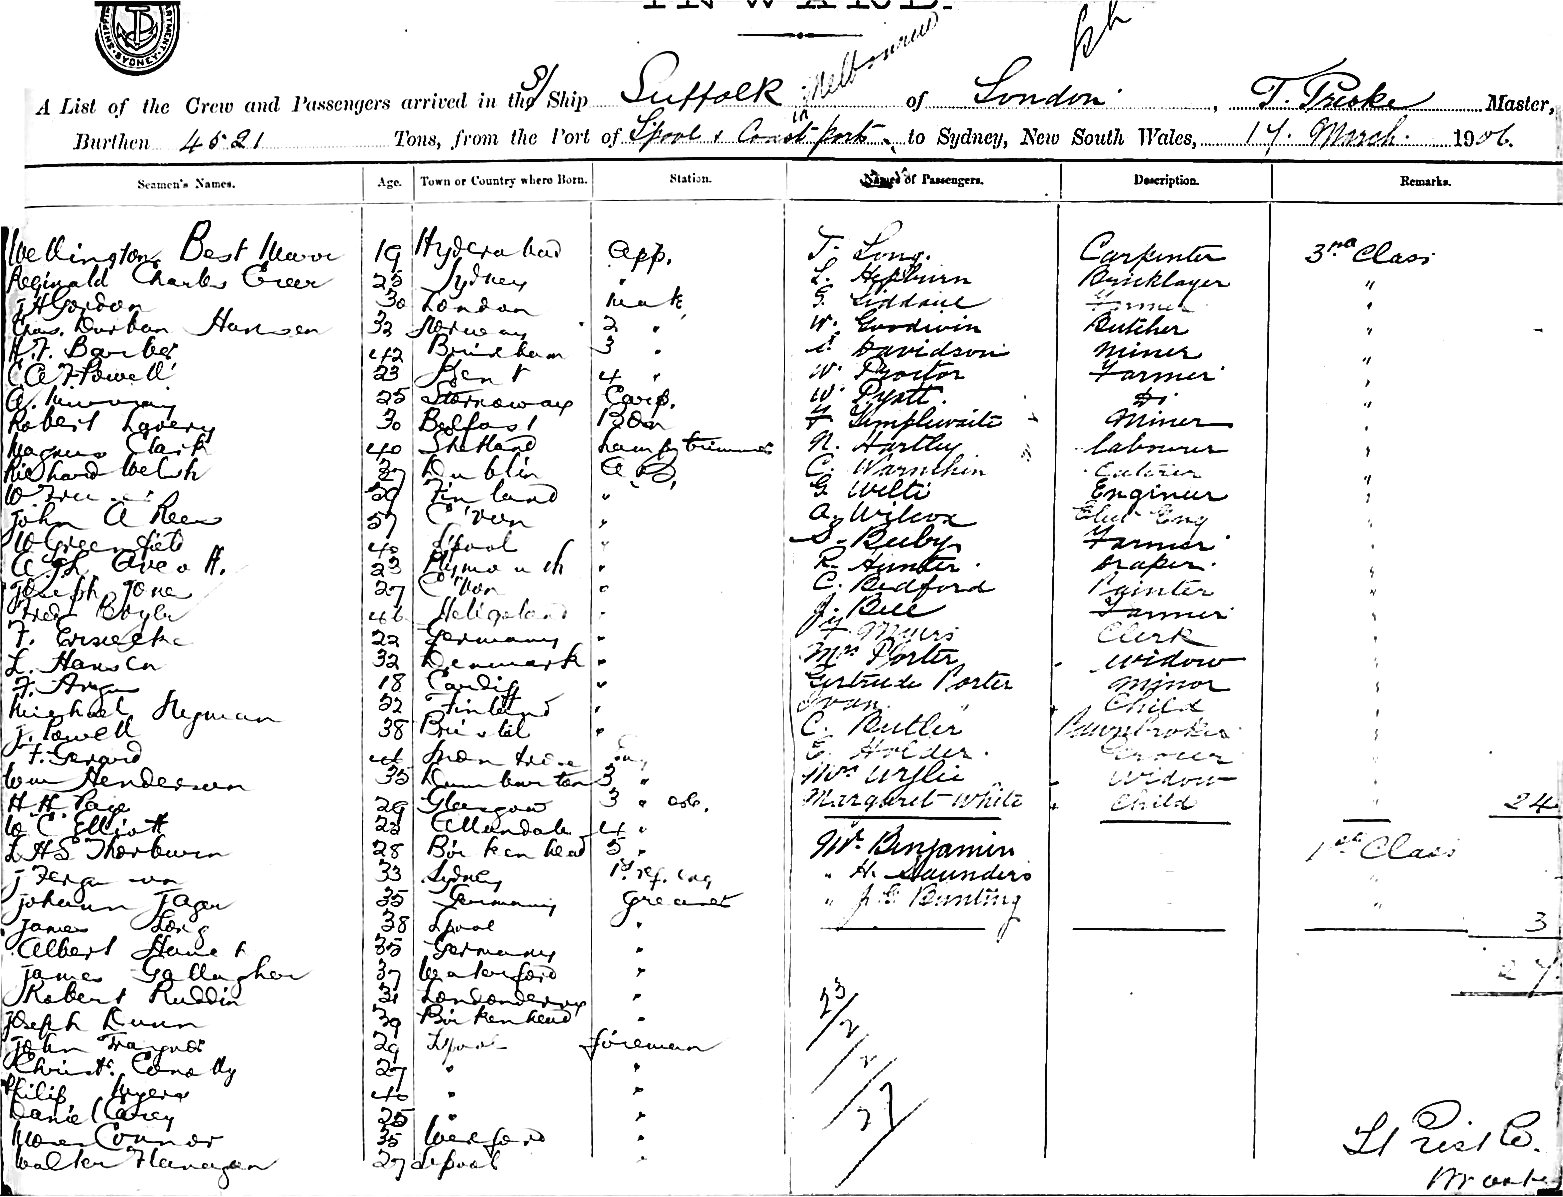 INWARD.
SHIPPING DEPARTMENT SYDNEY
A List of the Crew and Passengers arrived in the S/ Ship Suffolk in Melbourne of London, T. Priske Master,
Burthen 4521 Tons, from the Port of L'pool & Coast ports to Sydney, New South Wales, 17. March. 1906.
Seamen's Names. Age. Town or Country where Born. Station. Names of Passengers. Description. Remarks.
Wellington Best 19 Hyderabad App. T. Long. Carpenter 3rd Class
Reginald Charles Greer 25 Sydney " L. Hepburn Bricklayer "
J H Gordon 30 London mate G. Liddane Farmer "
Chas. Durban Hansen 32 Norway 2 " W. Goodwin Butcher "
H. F. Barber 42 3 " Davidson miner "
C A F Powell 23 Kent 4 " W. Proctor Farmer "
A. 25 Stornoway Carp. W. Pyatt. Do "
Robert Lavery 30 Belfast Bosn F Timplewaite Miner "
Magnus Clark 40 Shetland Lamp trimmer N. Hartley labourer "
Richard Welsh 27 Dublin AB. C. Warnchin "
W 29 Finland " G. Wilti Engineer "
John A Rees 57 C'von " A. Wilcox Elec Eng "
W Greenfield 40 Lpool " S. Beeby Farmer "
23 Plymouth " R. Hunter. Draper. "
Joseph Jones 27 C'von " C. Bedford Painter "
Fred Boyle 46 Heligoland " J. Bell Farmer "
F. 22 Germany " F. Myers Clerk "
L. Hansen 32 Denmark " Mrs Porter widow "
F. 18 Cardiff " Gertrude Porter minor "
Michael Heyman 22 Finland " Ivan " Child "
J. Powell 38 Bristol " C. Butler Pawnbroker "
F. Gerard E. Holder. Grocer "
Wm Henderson 35 Dumbarton 3 " Mrs Wylie Widow "
H. H. Page 29 Glasgow 3 " Margaret White Child " 24
W C Elliott 23 Allandale 4 "
L H S Thorburn 28 Birkenhead 5 " Mr. Benjamin 1st Class
J Ferguson 33 Sydney 1st ref. eng " H. Saunders "
Johann Jager 35 Germany Greaser " J. C Bunting "
James Long 38 Lpool " 3
Albert 35 Germany "
James Gallagher 37 Waterford " 27
Robert Ruddin 31 Londonderry "
Joseph Dunn 39 Birkenhead "
John 29 Lpool fireman
Christr. Conolly 27 " "
Philip Myers 40 " "
Daniel Carey 25 " "
Connor 35 Wexford "
Walter Flanagan 27 Lpool "
23/2/2/27